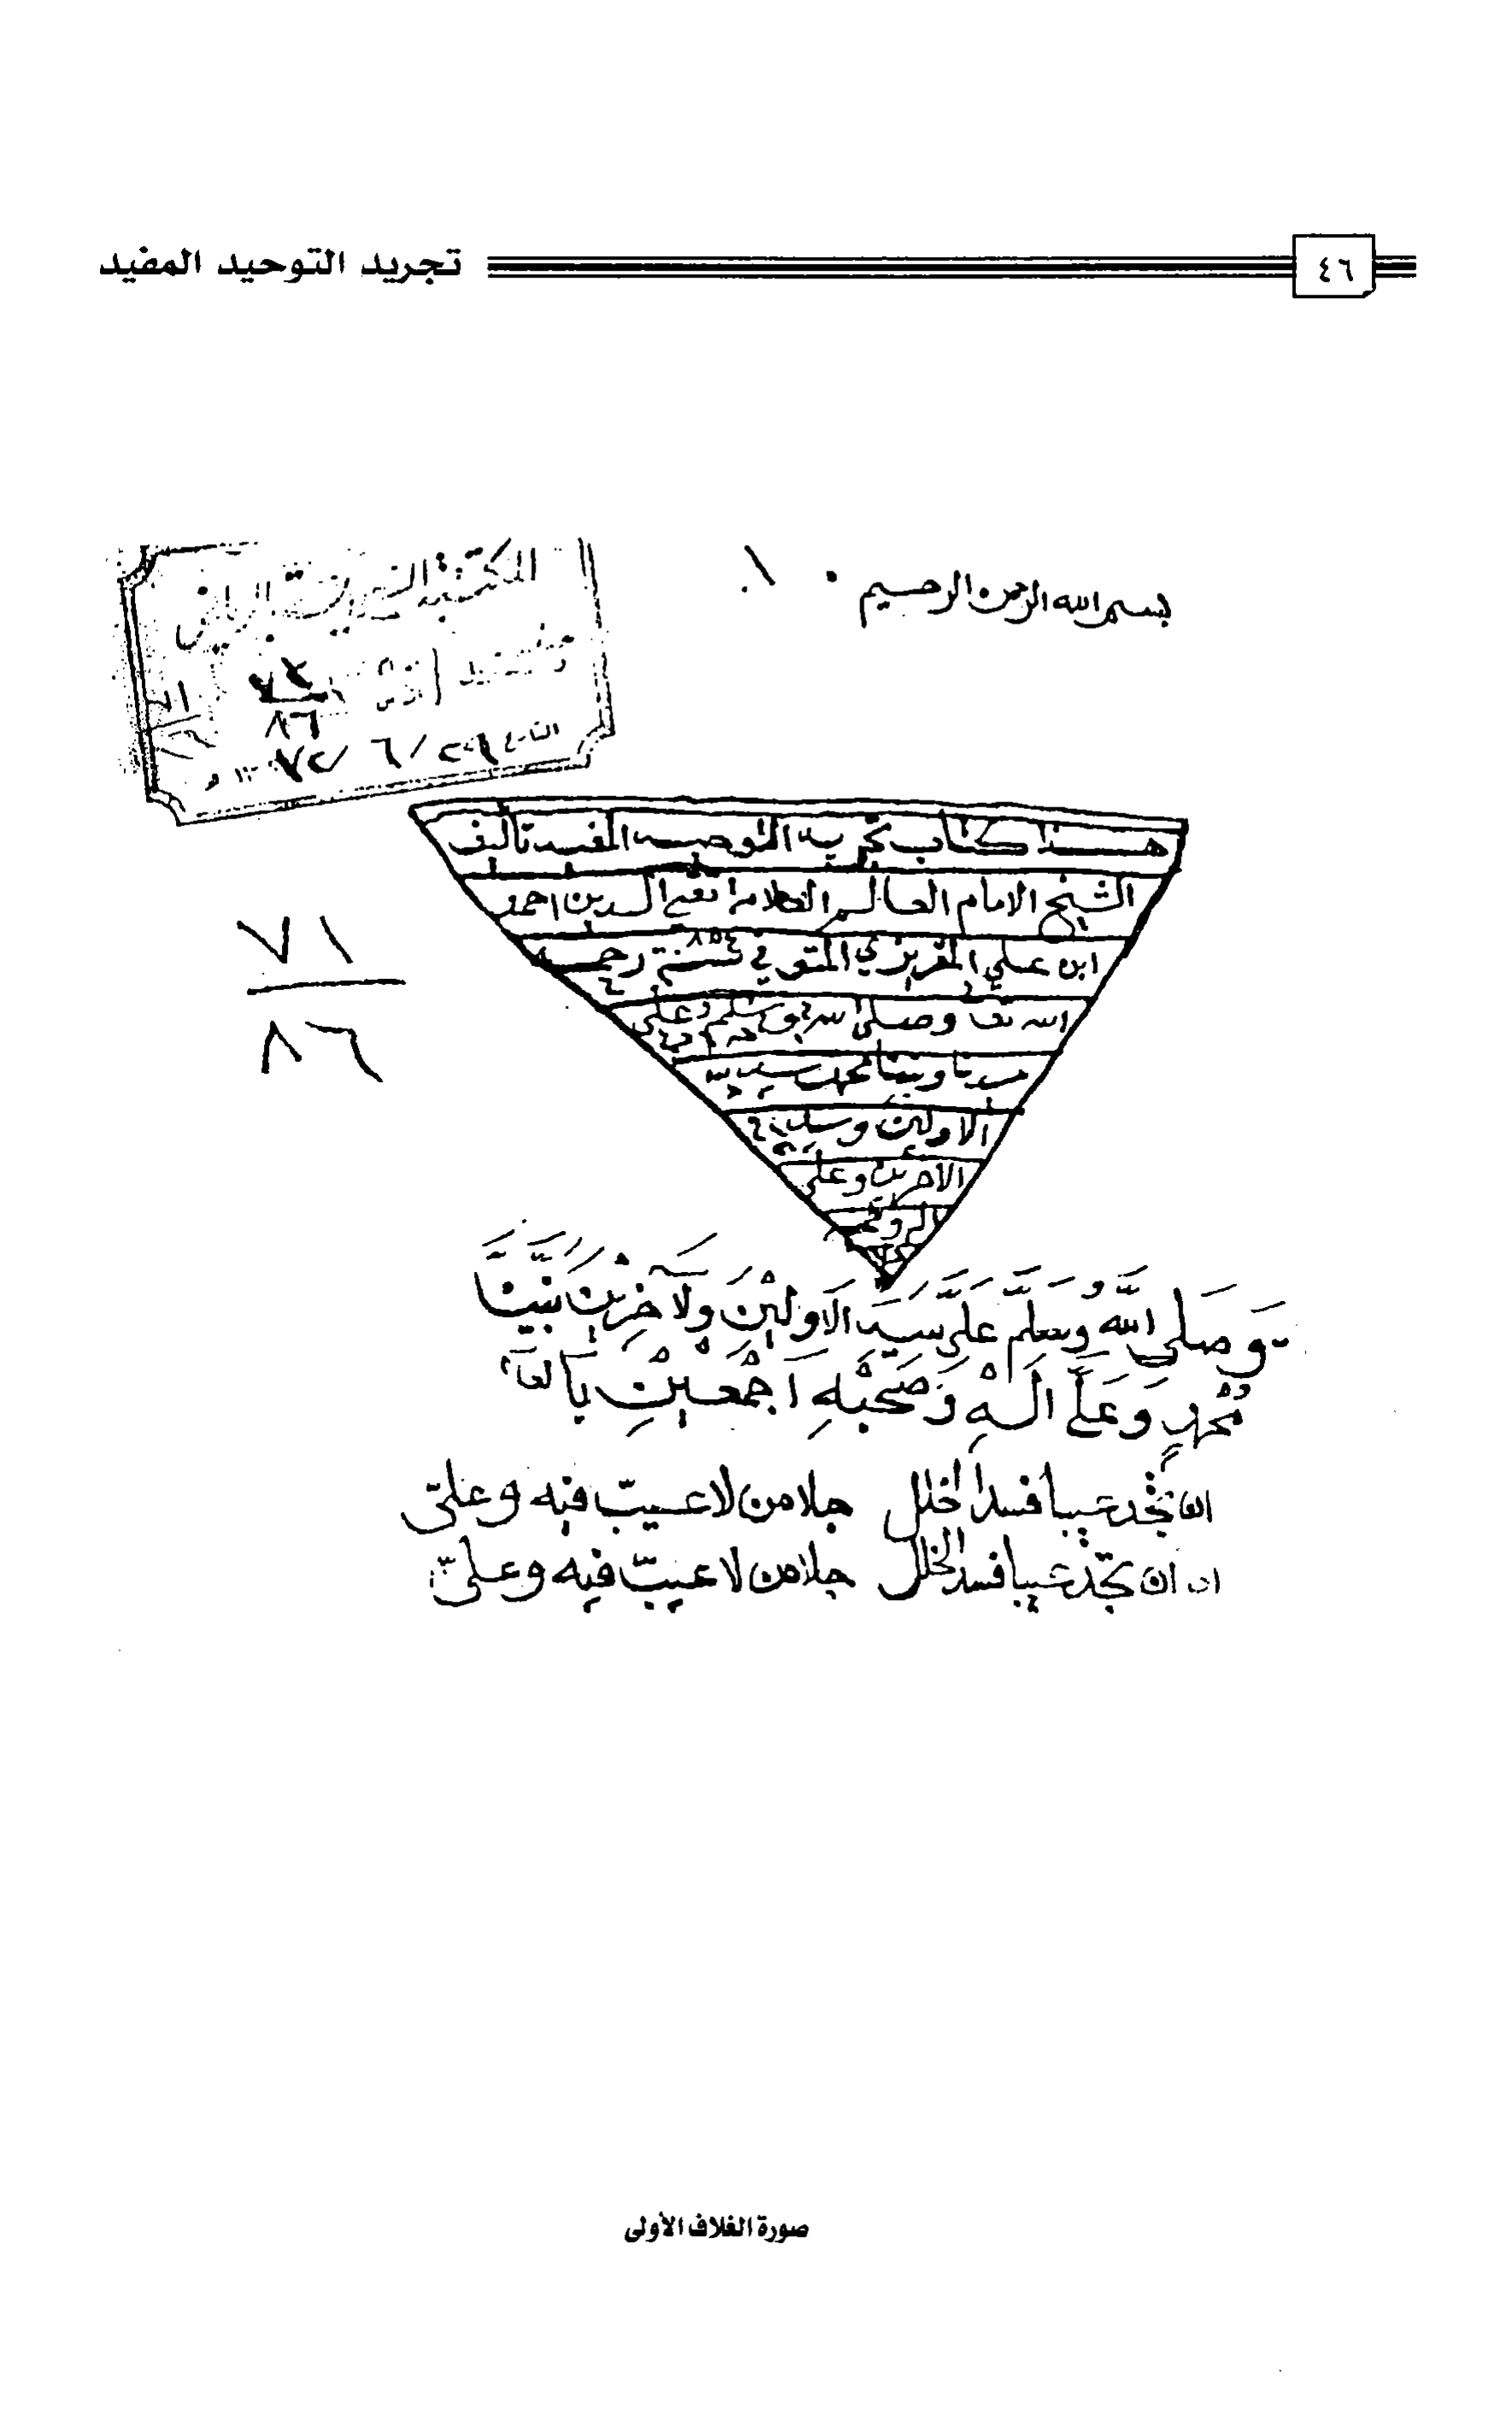 ٤٦ تجريد التوحيد المفيد
بسم الله الرحمن الرحيم
المكتبة
٨٦
هذا كتاب تجريد التوحيد المفيد تأليف
الشيخ الامام العالم العلامة تقي الدين احمد
ابن علي المقريزي المتوفي سنة ٨٥٤ رحمه
الله تع وصلى الله وسلم على
سيدنا ونبينا محمد سيد
الاولين وسيد
الاخرين وعلى
اله وصحبه
٧١
٨٦
وَصَلى اللَّهُ وَسَلَّم عَلَى سَيَدِ الَاولِيْنَ وَلَآخِرِيْنَ نَبِيَّنَا
مُحَمَّدٍ وَعَلَى الِهْ وَصَحْبْهِ اَجْمَعِيْنْ
ان تجد عيبا فسد الخلل جلا من لا عيبّ فيه وعلىّ
ان تجد عيبا فسد الخلل جلا من لا عيبّ فيه وعلىّ
صورة الغلاف الأولى